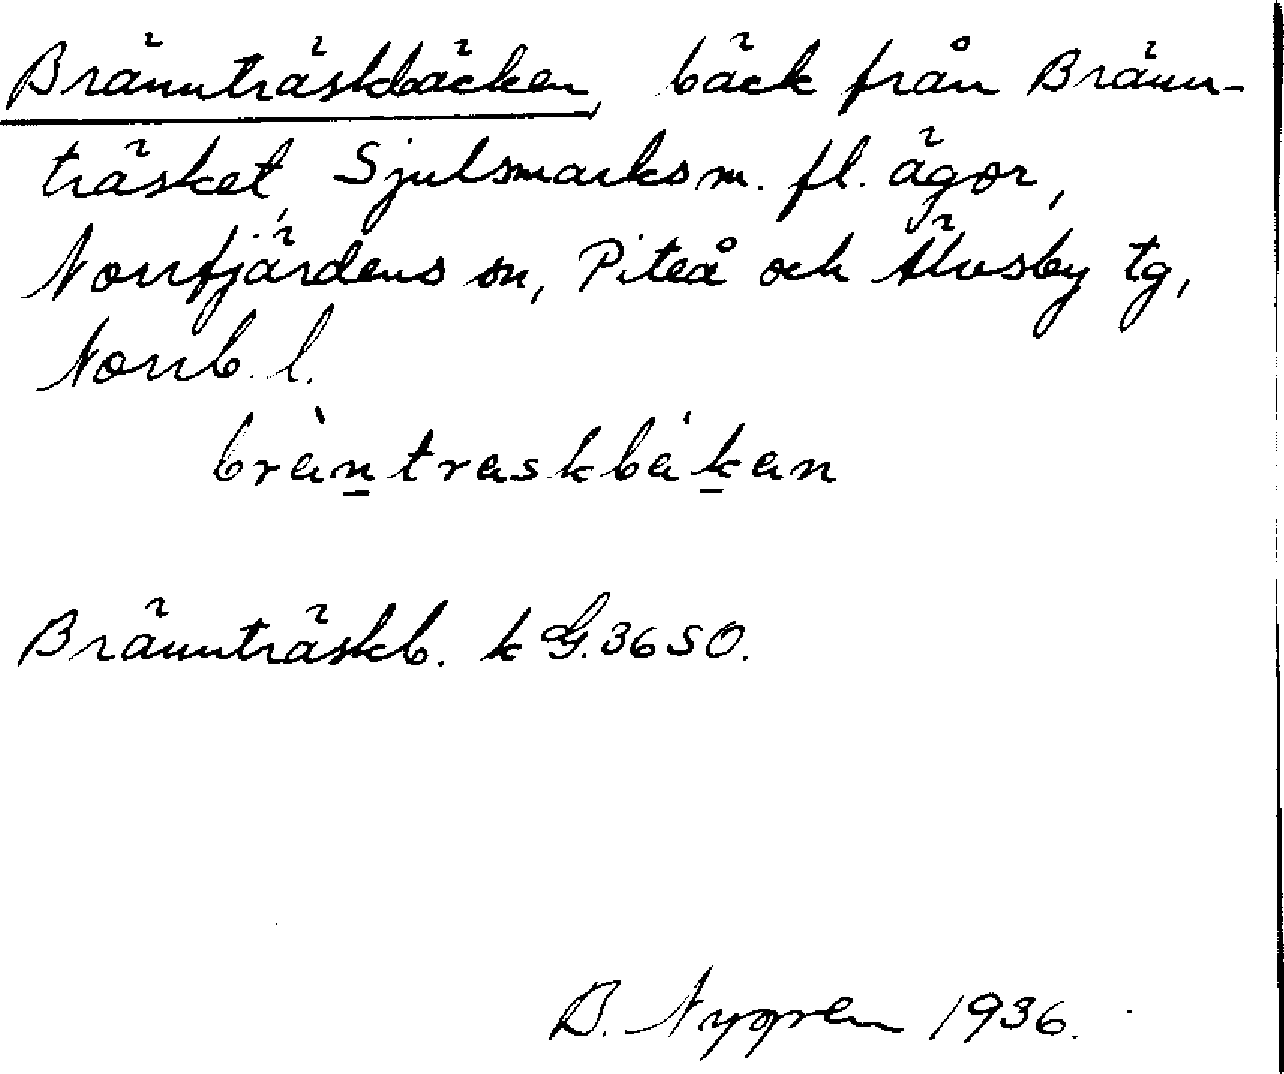 Brännträskbäcken, bäck från Bränn-
träsket, Sjulsmarks m. fl. ägor,
Norrfjärdens sn, Piteå och Älvsby tg,
Norrb. l.
bràntraskbákan
Brännträskb. k G. 3650.
B. Nygren 1936.